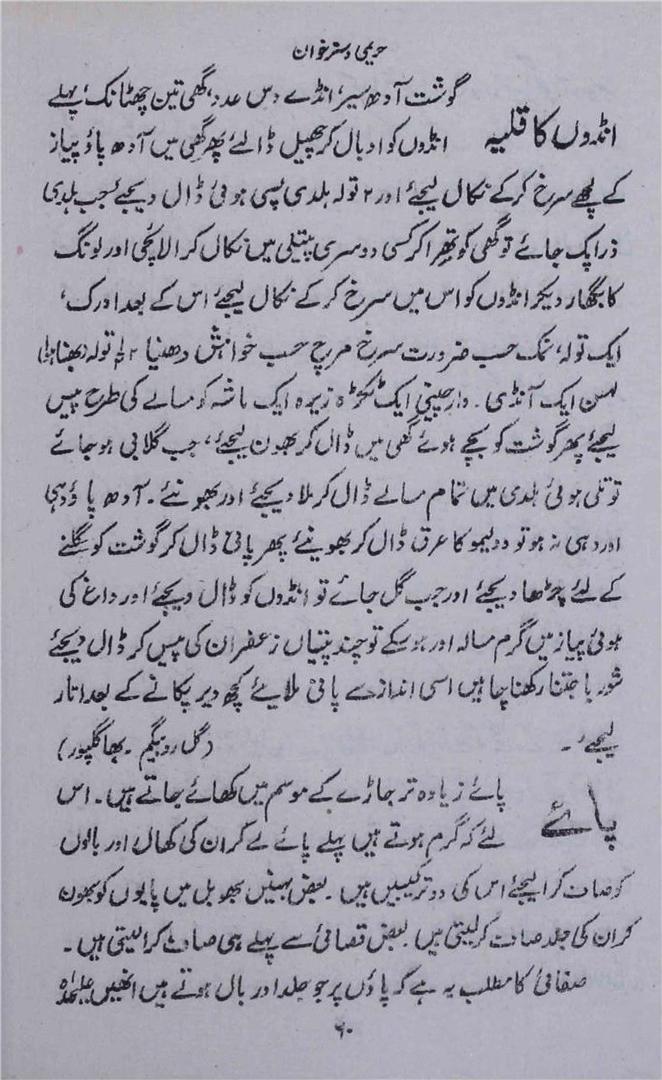 حریمی دسترخوان
گوشت آدھ سیر، انڈے دس عدد، گھی تین چھٹانک، پہلے
انڈوں کا قلیہ
انڈوں کو ادبال کر چھیل ڈالئے پھر گھی میں آدھ پاؤ پیاز
کے لچھے سرخ کرکے نکال لیجئے اور ۲ تولہ ہلدی پسی ہوئی ڈال دیجئے جب ہلدی
ذرا پک جائے تو گھی کو تِھرا کر کسی دوسری پتیلی میں نکال کر الائچی اور لونگ
کا بگھار دیکر انڈوں کو اس میں سرخ کرکے نکال لیجئے اس کے بعد ادرک،
ایک تولہ، نمک حسب ضرورت سرخ مرچ حسب خواہش دھنیا تولہ بھنا ہوا
لہسن ایک آنڈی۔ دارچینی ایک ٹکڑہ زیرہ ایک ماشہ کو مسالے کی طرح پیس
لیجئے پھر گوشت کو بچے ہوئے گھی میں ڈال کر بھون لیجئے، جب گلابی ہو جائے
تو تلی ہوئی ہلدی میں تمام مسالے ڈال کر ملا دیجئے اور بھونئے۔ آدھ پاؤ دہی
اور دہی نہ ہو تو دو لیمو کا عرق ڈال کر بھوینئے پھر پانی ڈال کر گوشت کو گلنے
کے لئے چڑھا دیجئے اور جب گل جائے تو انڈوں کو ڈال دیجئے اور داغ کی
ہوئی پیاز میں گرم مسالہ اور ہوسکے تو چند پتیاں زعفران کی پیس کر ڈال دیجئے
شوربا جتنا رکھنا چاہیں اسی انداز سے پانی ملایئے کچھ دیر پکانے کے بعد اتار
لیجئے۔ (گل رو بیگم۔ بھاگلپور)
پائے
پائے زیادہ تر جاڑے کے موسم میں کھائے جاتے ہیں۔ اس
لئے کہ گرم ہوتے ہیں پہلے پائے لے کر ان کی کھال اور بالوں
کو صاف کرا لیجئے اس کی دو ترکیبیں ہیں۔ بعض بہنیں بھوبل میں پایوں کو بھون
کر ان کی جلد صاف کر لیتی ہیں بعض قصائی سے پہلے ہی صاف کرا لیتی ہیں۔
صفائی کا مطلب یہ ہے کہ پاؤں پر جو جلد اور بال ہوتے ہیں انھیں علیحدہ
۶۰